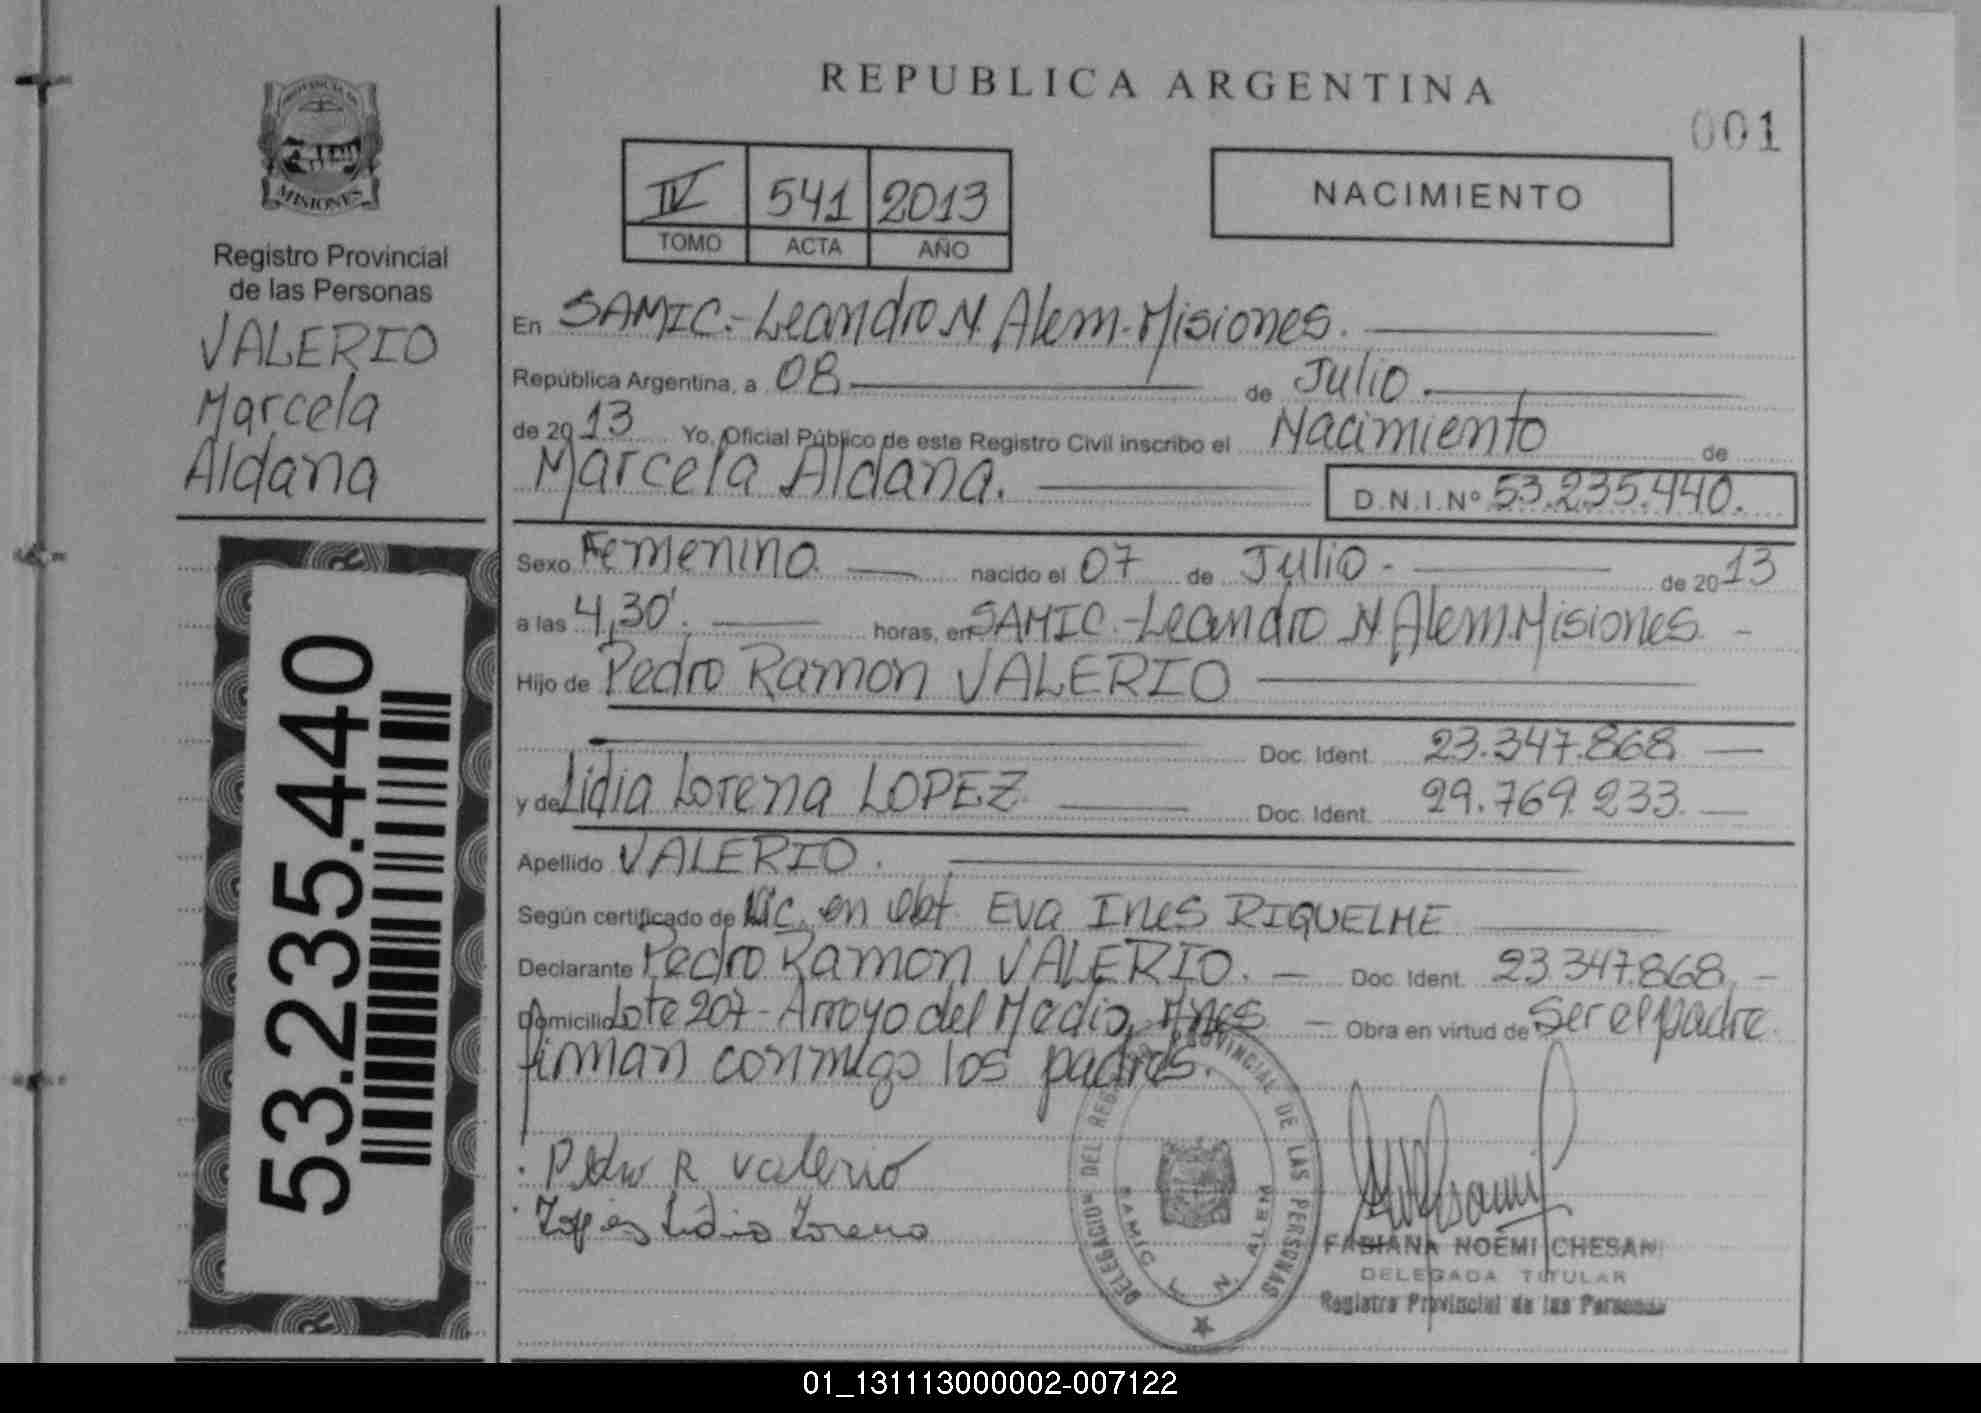 REPUBLICA ARGENTINA
001
PROVINCIA DE
MISIONES
Registro Provincial
de las Personas
VALERIO
Marcela
Aldana
53.235.440
IV 541 2013
TOMO ACTA AÑO
NACIMIENTO
En SAMIC.-Leandro N. Alem-Misiones.
República Argentina, a 08 de Julio.
de 2013 Yo, Oficial Público de este Registro Civil inscribo el Nacimiento de
Marcela Aldana. D.N.I.Nº 53.235.440.
Sexo Femenino. nacido el 07 de Julio - de 2013
a las 4,30'. horas, en SAMIC.-Leandro N. Alem.Misiones. -
Hijo de Pedro Ramon VALERIO
Doc. Ident. 23.347.868
y de Lidia Lorena LOPEZ. Doc. Ident. 29.769.233.
Apellido VALERIO.
Según certificado de Lic. en Obt. Eva Ines RIQUELME
Declarante Pedro Ramon VALERIO. - Doc. Ident. 23.347.868. -
Domicilio Lote 207 - Arroyo del Medio, Mnes - Obra en virtud de ser el padre.
firman conmigo los padres.
Pedro R Valerio
Lopes Lidia Lorena
DELEGACION DEL REGISTRO PROVINCIAL DE LAS PERSONAS
SAMIC L. N. ALEM
FABIANA NOEMI CHESANI
DELEGADA TITULAR
Registro Provincial de las Personas
01_131113000002-007122